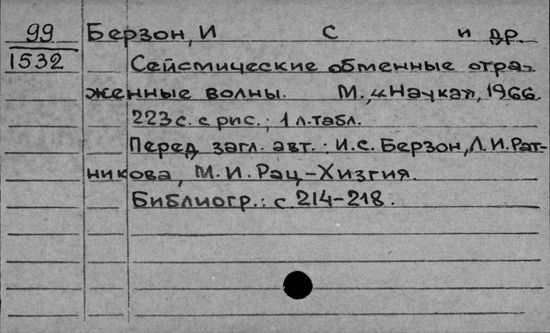 99 Берзон, И С и др.
1532 Сейсмические обменные отра-
женные волны. М., „Наука", 1966.
223 с. с рис.; 1 л. табл.
Перед загл. авт.: И.С. Берзон, Л.И. Рат-
никова, М.И. Рац-Хизгия.
Библиогр.: с 214-218.